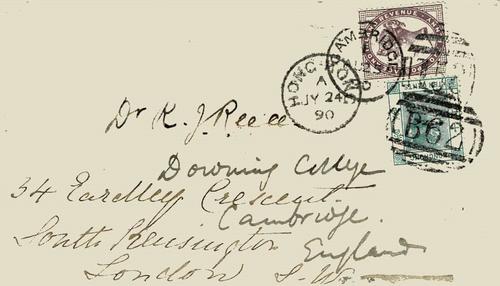 HONG-KONG
A
JY 24
90
CAMBRIDGE
B62
Dr R. J. Reece
Downing College
34 Eardley Crescent.
Cambridge.
South Kensington
England
London S.W.